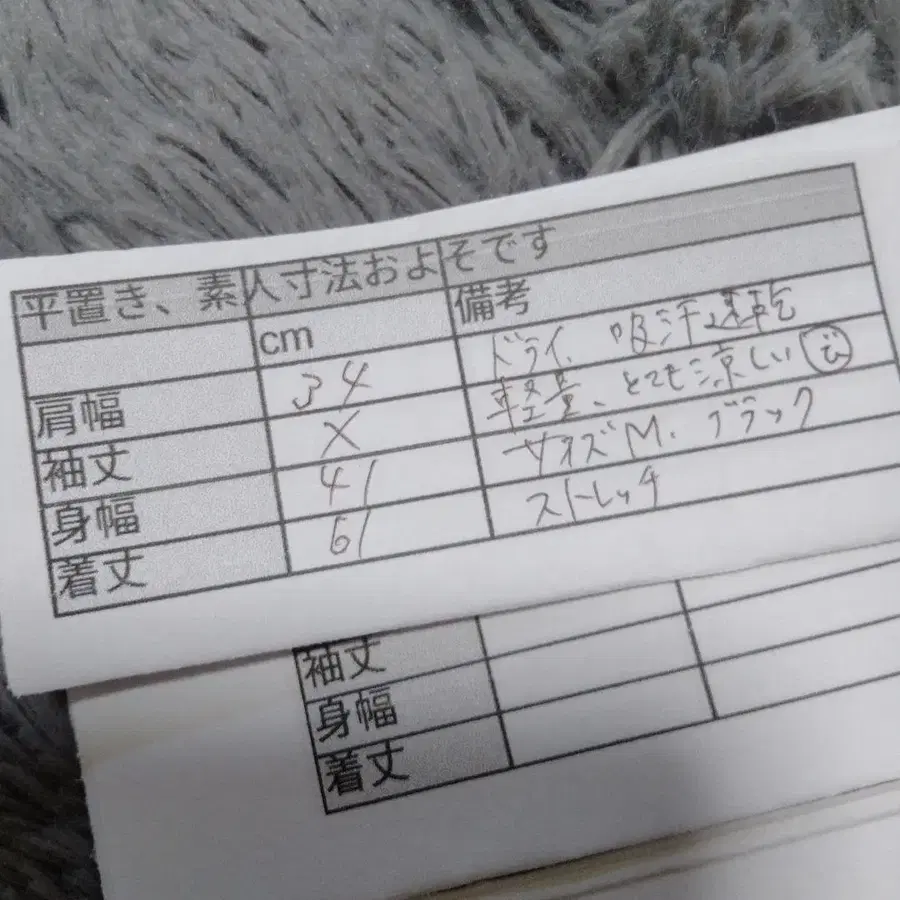 平置き、素人寸法およそです
cm 備考
肩幅 34 ドライ、吸汗速乾
袖丈 X 軽量、とても涼しい
身幅 41 サイズM. ブラック
着丈 61 ストレッチ
袖丈
身幅
着丈